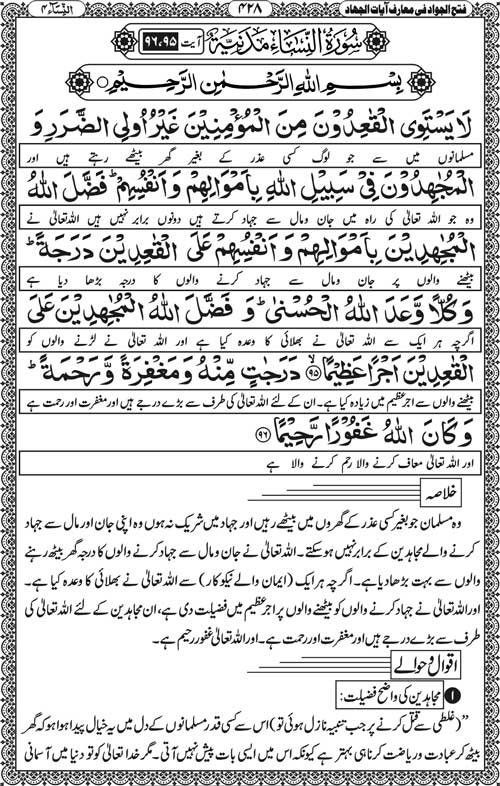 فتح الجواد فی معارف آیات الجہاد
۴۲۸
النِّسَآء ۴
سُورَۃُ النِّسَآءِ مَدَنِیَّۃٌ آیت ۹۶،۹۵
بِسْمِ اللّٰہِ الرَّحْمٰنِ الرَّحِیْمِ
لَا یَسْتَوِی الْقٰعِدُوْنَ مِنَ الْمُؤْمِنِیْنَ غَیْرُ اُولِی الضَّرَرِ وَ
مسلمانوں میں سے جو لوگ کسی عذر کے بغیر گھر بیٹھے رہتے ہیں اور
الْمُجٰہِدُوْنَ فِیْ سَبِیْلِ اللّٰہِ بِاَمْوَالِہِمْ وَاَنْفُسِہِمْ ؕ فَضَّلَ اللّٰہُ
وہ جو اللہ تعالیٰ کی راہ میں جان ومال سے جہاد کرتے ہیں دونوں برابر نہیں ہیں اللہ تعالیٰ نے
الْمُجٰہِدِیْنَ بِاَمْوَالِہِمْ وَاَنْفُسِہِمْ عَلَی الْقٰعِدِیْنَ دَرَجَۃً ؕ
بیٹھنے والوں پر جان ومال سے جہاد کرنے والوں کا درجہ بڑھا دیا ہے
وَکُلًّا وَّعَدَ اللّٰہُ الْحُسْنٰی ؕ وَ فَضَّلَ اللّٰہُ الْمُجٰہِدِیْنَ عَلَی
اگرچہ ہر ایک سے اللہ تعالیٰ نے بھلائی کا وعدہ کیا ہے اور اللہ تعالیٰ نے لڑنے والوں کو
الْقٰعِدِیْنَ اَجْرًا عَظِیْمًا ۙ۹۵ دَرَجٰتٍ مِّنْہُ وَمَغْفِرَۃً وَّرَحْمَۃً ؕ
بیٹھنے والوں سے اجر عظیم میں زیادہ کیا ہے۔ ان کے لئے اللہ تعالیٰ کی طرف سے بڑے درجے ہیں اور مغفرت اور رحمت ہے
وَکَانَ اللّٰہُ غَفُوْرًا رَّحِیْمًا ۹۶
اور اللہ تعالیٰ معاف کرنے والا رحم کرنے والا ہے
خلاصہ
وہ مسلمان جو بغیر کسی عذر کے گھروں میں بیٹھے رہیں اور جہاد میں شریک نہ ہوں وہ اپنی جان اور مال سے جہاد
کرنے والے مجاہدین کے برابر نہیں ہو سکتے۔ اللہ تعالیٰ نے جان ومال سے جہاد کرنے والوں کا درجہ گھر بیٹھ رہنے
والوں سے بہت بڑھا دیا ہے۔ اگرچہ ہر ایک (ایمان والے نیکوکار) سے اللہ تعالیٰ نے بھلائی کا وعدہ کیا ہے۔
اور اللہ تعالیٰ نے جہاد کرنے والوں کو بیٹھنے والوں پر اجر عظیم میں فضیلت دی ہے، ان مجاہدین کے لئے اللہ تعالیٰ کی
طرف سے بڑے درجے ہیں اور مغفرت اور رحمت ہے۔ اور اللہ تعالیٰ غفور رحیم ہے۔
اقوال وحوالے
۱ مجاہدین کی واضح فضیلت:
”(غلطی سے قتل کرنے پر جب تنبیہ نازل ہوئی تو) اس سے کسی قدر مسلمانوں کے دل میں یہ خیال پیدا ہوا ہو کہ گھر
بیٹھ کر عبادت وریاضت کرنا ہی بہتر ہے کیونکہ اس میں ایسی بات پیش نہیں آتی۔ مگر خدا تعالیٰ کو تو دنیا میں آسمانی